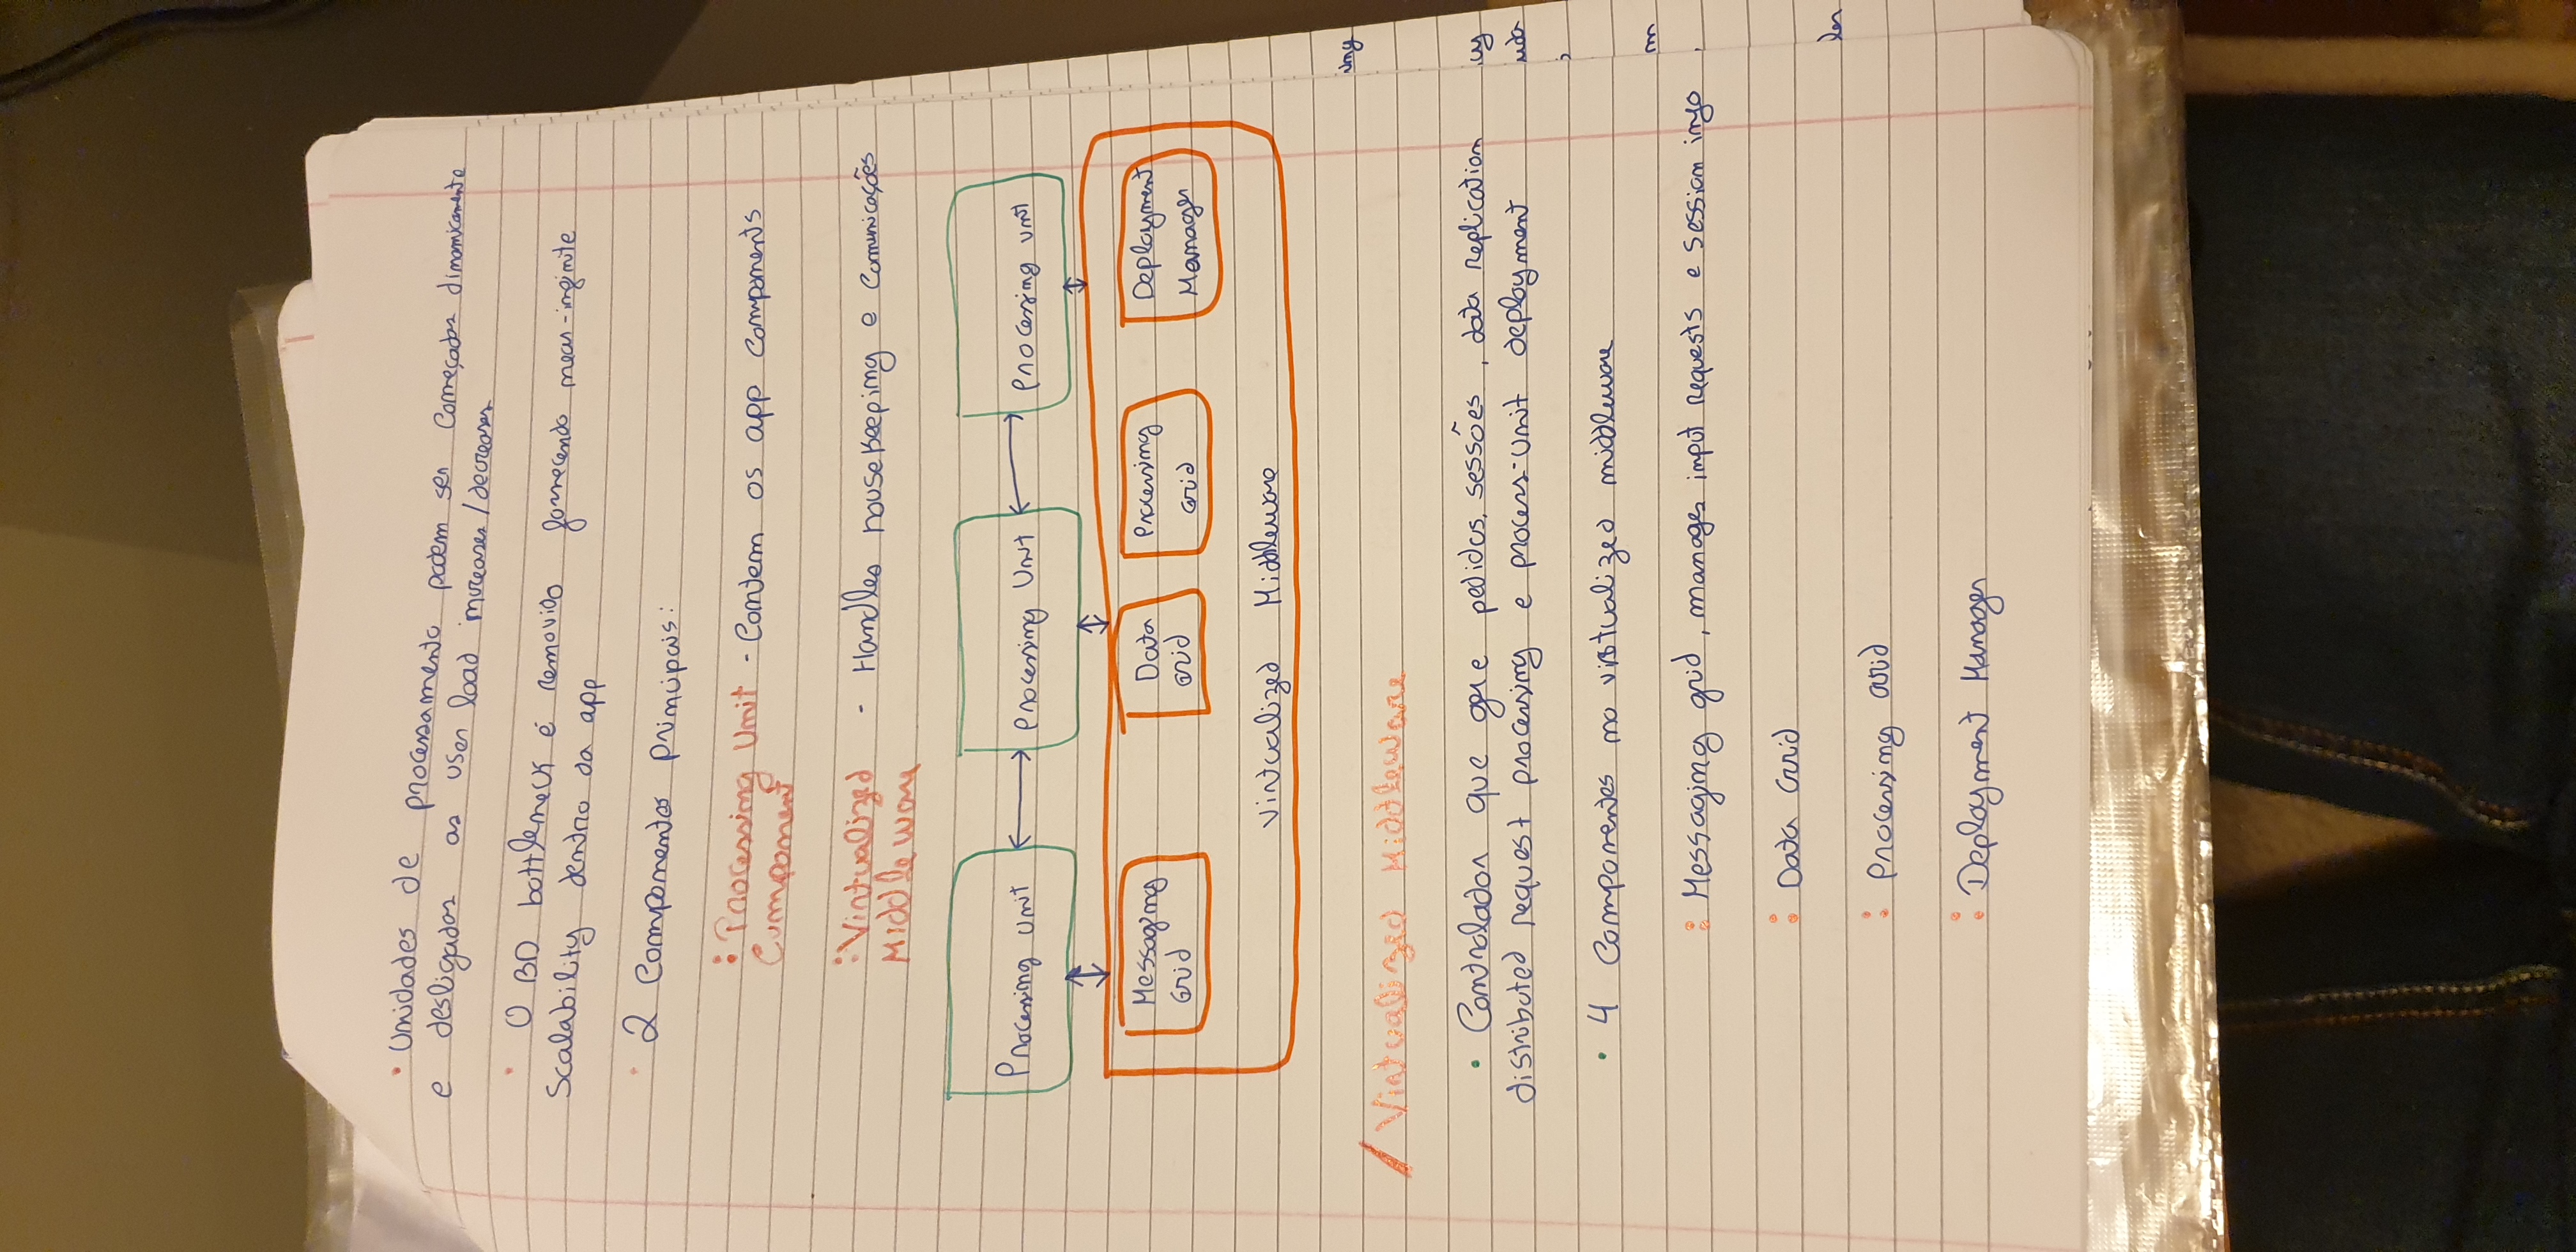 • Unidades de processamento podem ser começadas dinamicamente
e desligadas as user load increases/decreases
• O BD bottleneck é removido fornecendo near-infinite
Scalability dentro da app
• 2 Componentes principais:
: Processing Unit - Contem os app components
Component
: Virtualized - Handles housekeeping e comunicações
Middleware
Processing Unit Processing Unit Processing unit
Messaging Data Processing Deployment
Grid Grid Grid Manager
Virtualized Middleware
/ Virtualized Middleware
• Controlador que gere pedidos, sessões, data replication
distributed request processing e process-unit deployment
• 4 Componentes no virtualized middleware
: Messaging grid, manages input requests e session info
: Data Grid
: Processing Grid
: Deployment Manager